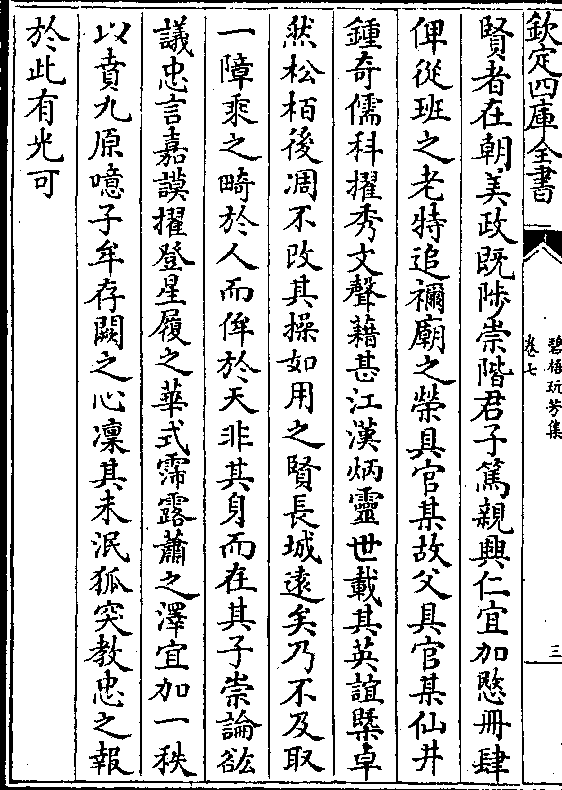 欽定四庫全書
碧梧玩芳集
卷七
三
賢者在朝美政既陟崇階君子篤親興仁宜加愍冊肆
俾從班之老特追禰廟之榮具官某故父具官某仙井
鍾奇儒科擢秀文聲藉甚江漢炳靈世載其英誼槩卓
然松栢後凋不改其操如用之賢長城遠矣乃不及取
一障乘之畸於人而侔於天非其身而在其子崇論谹
議忠言嘉謨擢登星履之華式霈露蕭之澤宜加一秩
以賁九原噫子牟存闕之心凜其未泯狐突教忠之報
於此有光可